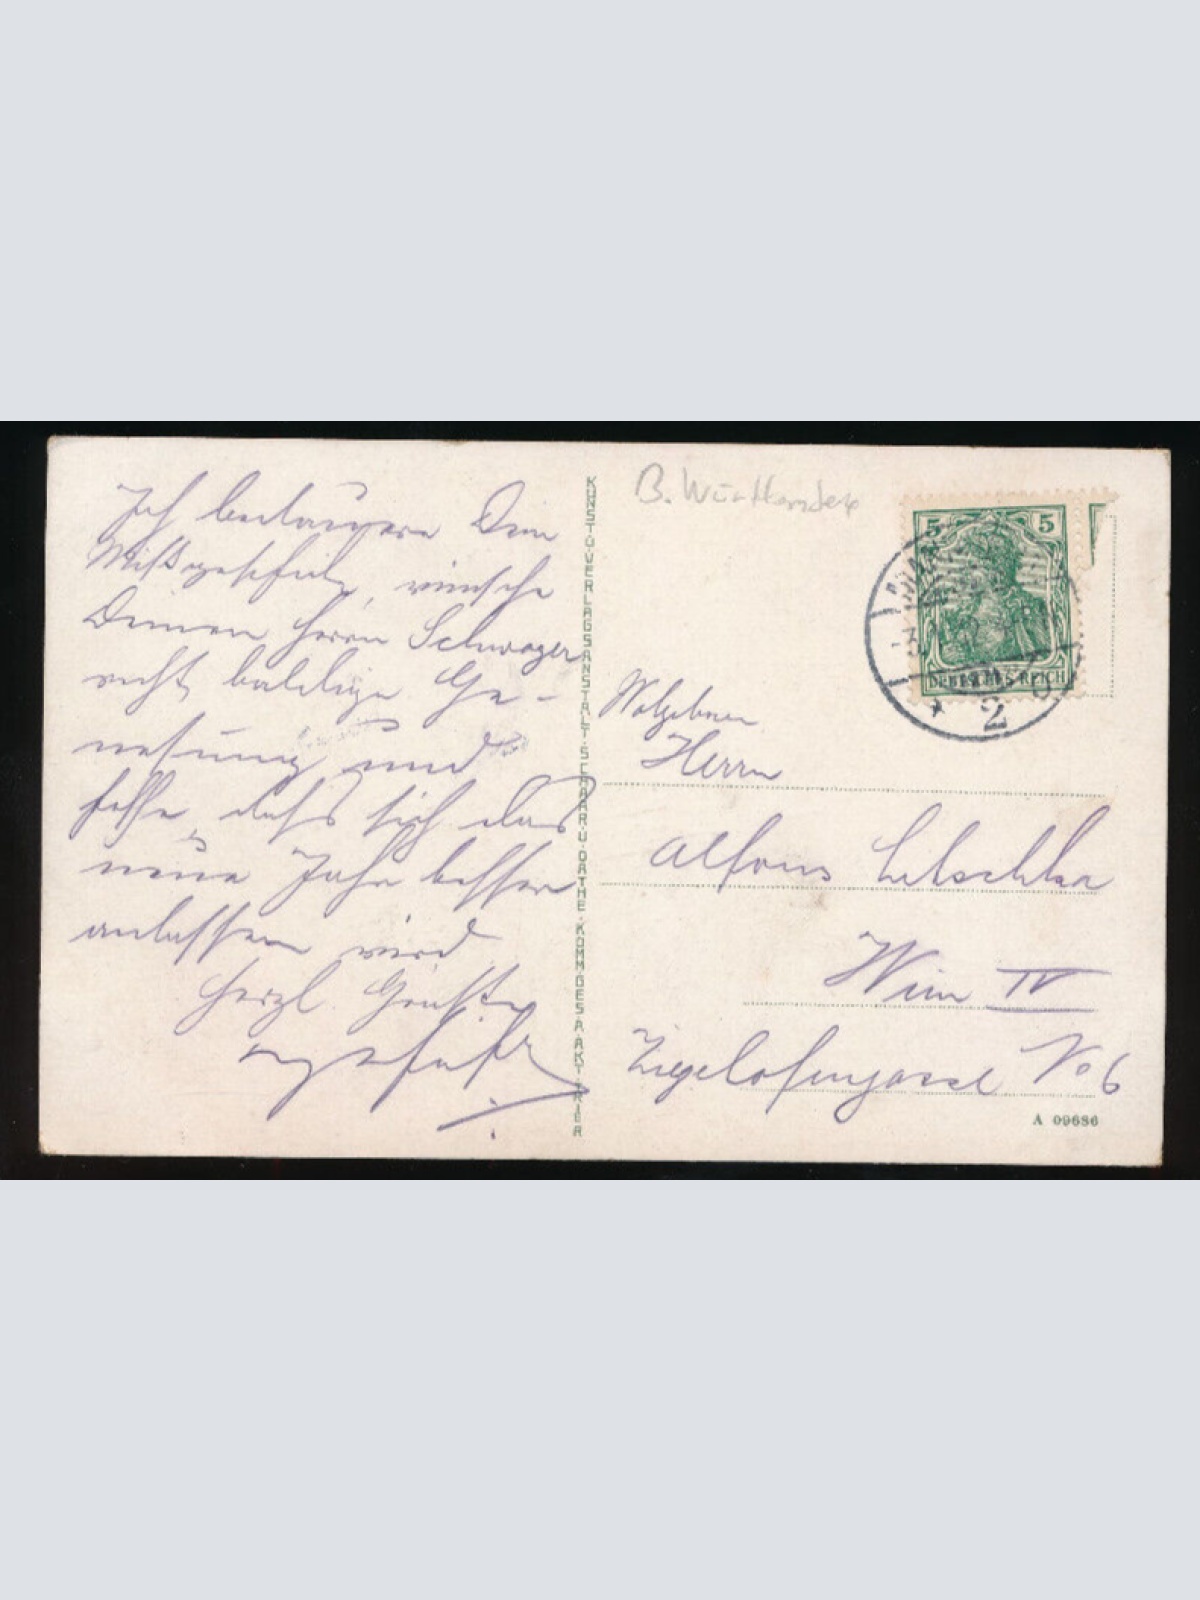 Ich bedauere Dein
Mißgeschick, wünsche
Deinem Herrn Schwager
recht baldige Ge-
nesung und
hoffe, dass sich das
neue Jahr besser
anlassen wird.
Herzl. Grüße
KUNST U. VERLAGSANSTALT · SCHAAR U. DATHE · KOMM. GES. A. AKT. TRIER
B. Württemberg
5 5
DEUTSCHES REICH
* 2
Wolgeboren
Herrn
Alfons
Wien IV
Ziegelofengasse No 6
A 09686